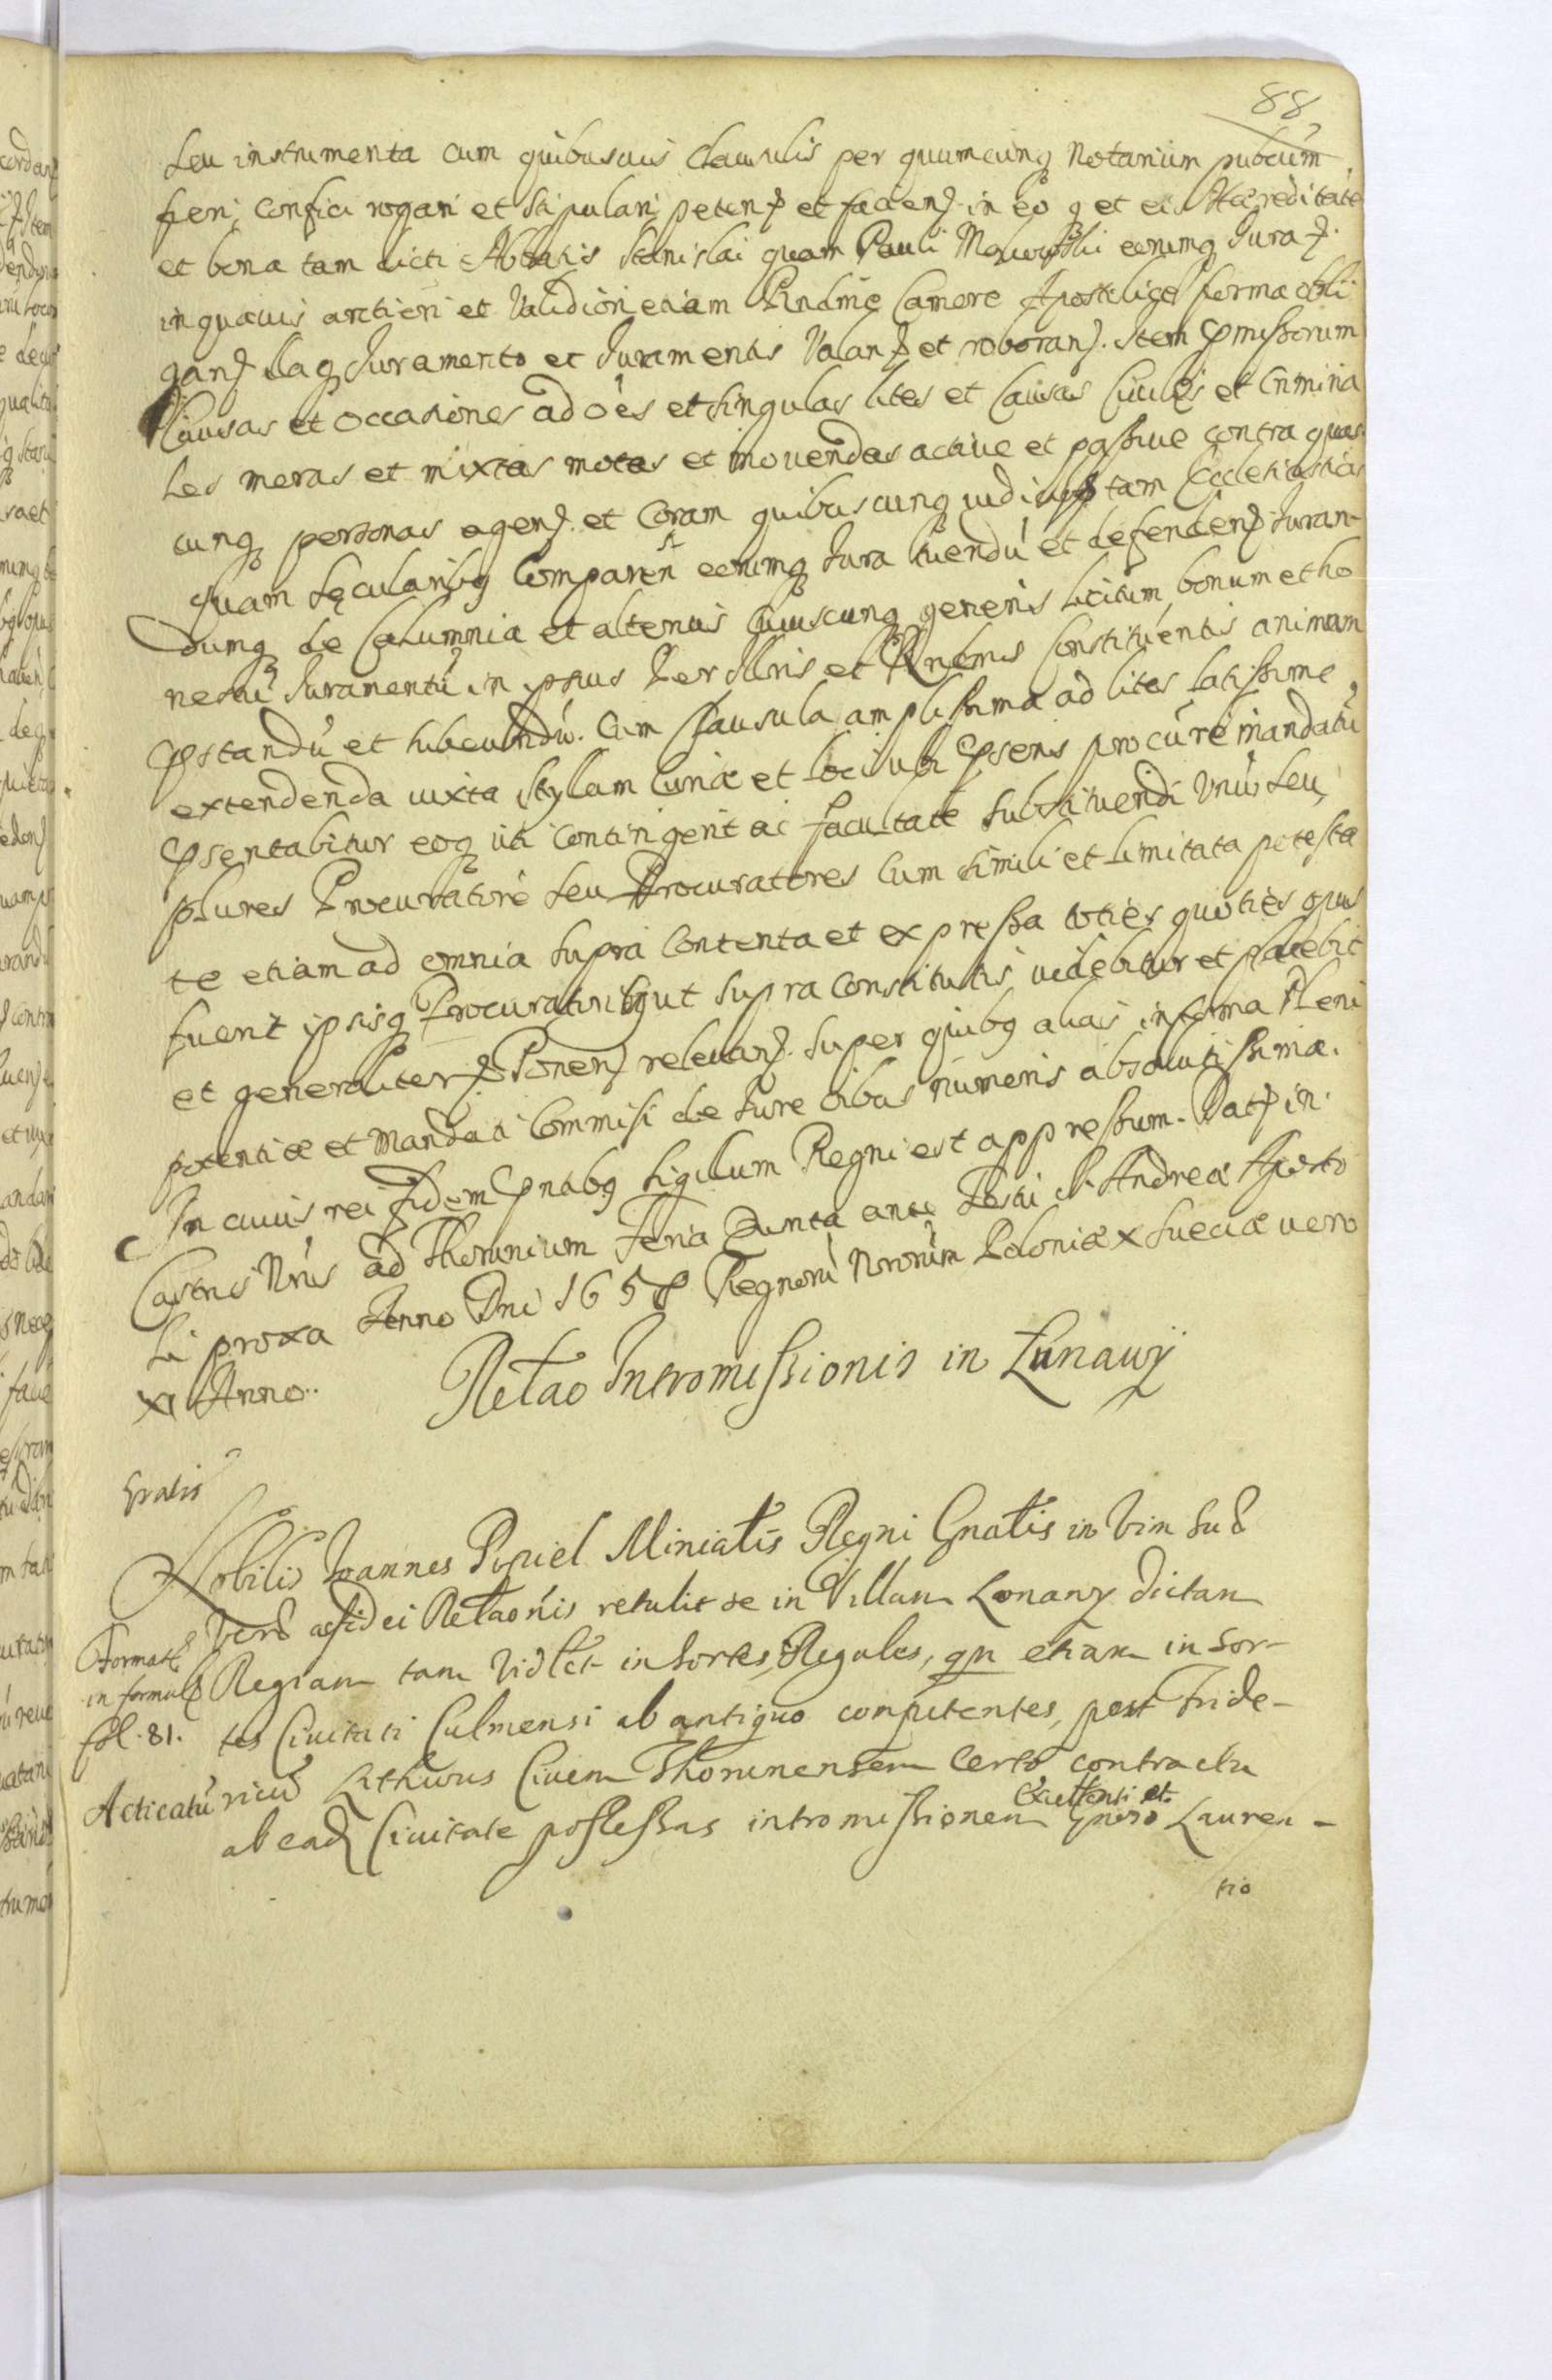 88
seu instrumenta cum quibusuis clausulis per quumcunq Notarium pubcum
fieri, confici rogari et stipulari, peten et facien in eo q et ei Hæreditate
et bona tam dicti Abbatis Stanislai quam Pauli eorumq Jura
in quauis arctiori et Validiori etiam Rndmę Camere Apostolicę forma obli
gan Juramento et Juramentis Valan et roboran. Item pmissorum
Causas et occasiones ad oēs et singulas lites et causas Ciuiles et Crimina
les meras et mixtas motas et mouendas actiue et passiue contra quas
cunq personas agen et Coram quibuscunq tam Ecclesiasticis
quam sęcularibq Comparen eorumq Jura tuendū et defenden Juran-
dumq de Calumnia et alterius cuiuscunq generis licitum bonum et ho
nestū Juramentū in ipsius Illris et Rndmis Constituentis animam
pstandū et subeundū. Cum clausula amplissima ad lites latissime
extendenda iuxta stylum Curiæ et loci ubi psens procure mandatū
psentabitur eoq uti contingerit ac facultate substituendi Vnū seu
plures Procuratore seu Procuratores cum simili et limitata potesta
te etiam ad omnia supra contenta et expressa toties quoties opus
fuerit ipsisq Procuratoribq ut supra constitutis uidebitur et placebit
et generaliter Ponen releuan. Super quibq aliis in forma Pleni
potentiæ et Mandati Commisi de Jure oibus numeris absolutissimæ.
In cuius rei fidem pntibq sigillum Regni est appressum. Dat in
Castris Nris ad Thorunium Feria Quinta ante Festū S. Andreæ Aposto
li proxa Anno Dni 1658 Regnorū Nrorum Poloniæ x Sueciæ vero
xi Anno..
Relao Intromissionis in Lunawÿ
Gratis
Nobilis Joannes Popiel Miniatis Regni Gnalis in Vim suæ
veræ ac fidei Relaonis retulit se in Villam Lonawy dictam
Format
in formul
fol. 81.
Regiam tam vidlct in sortes Regales, qm etiam in sor-
tes Ciuitati Culmensi ab antiquo competentes, post Fride-
Acticatū
ricū Civem Thorunensem Certo contractu
ab ead Ciuitate possessas intromissionem Gnoso Lauren-
Excellenti et
tio